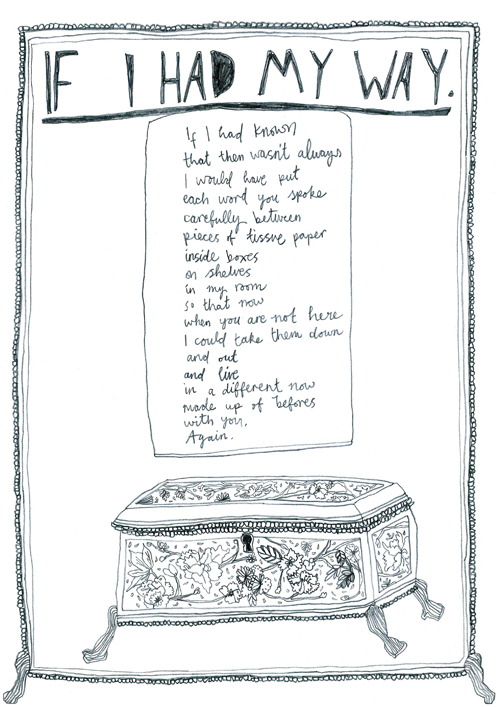 IF I HAD MY WAY.
If I had known
that then wasn't always
I would have put
each word you spoke
carefully between
pieces of tissue paper
inside boxes
on shelves
in my room
so that now
when you are not here
I could take them down
and out
and live
in a different now
made up of befores
with you.
Again.